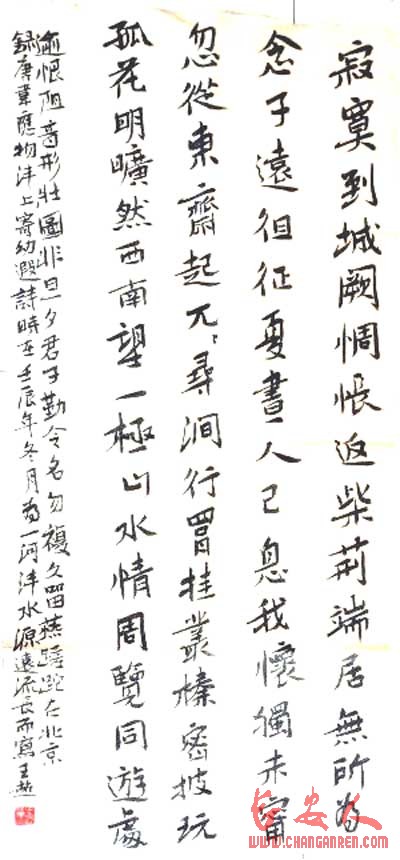 寂寞到城闕惆悵返柴荊端居無所為
念子遠徂征夏晝人已息我懷獨未甯
忽從東齋起兀々尋澗行罥挂叢榛密披玩
孤花明曠然西南望一極山水情周覽同遊處
逾恨阻音形壯圖非旦夕君子勤令名勿複久留燕蹉跎在北京
錄唐韋應物沣上寄幼遐詩時在壬辰年冬月為一河沣水源遠流長而寫王
长安人
WWW.CHANGANREN.COM